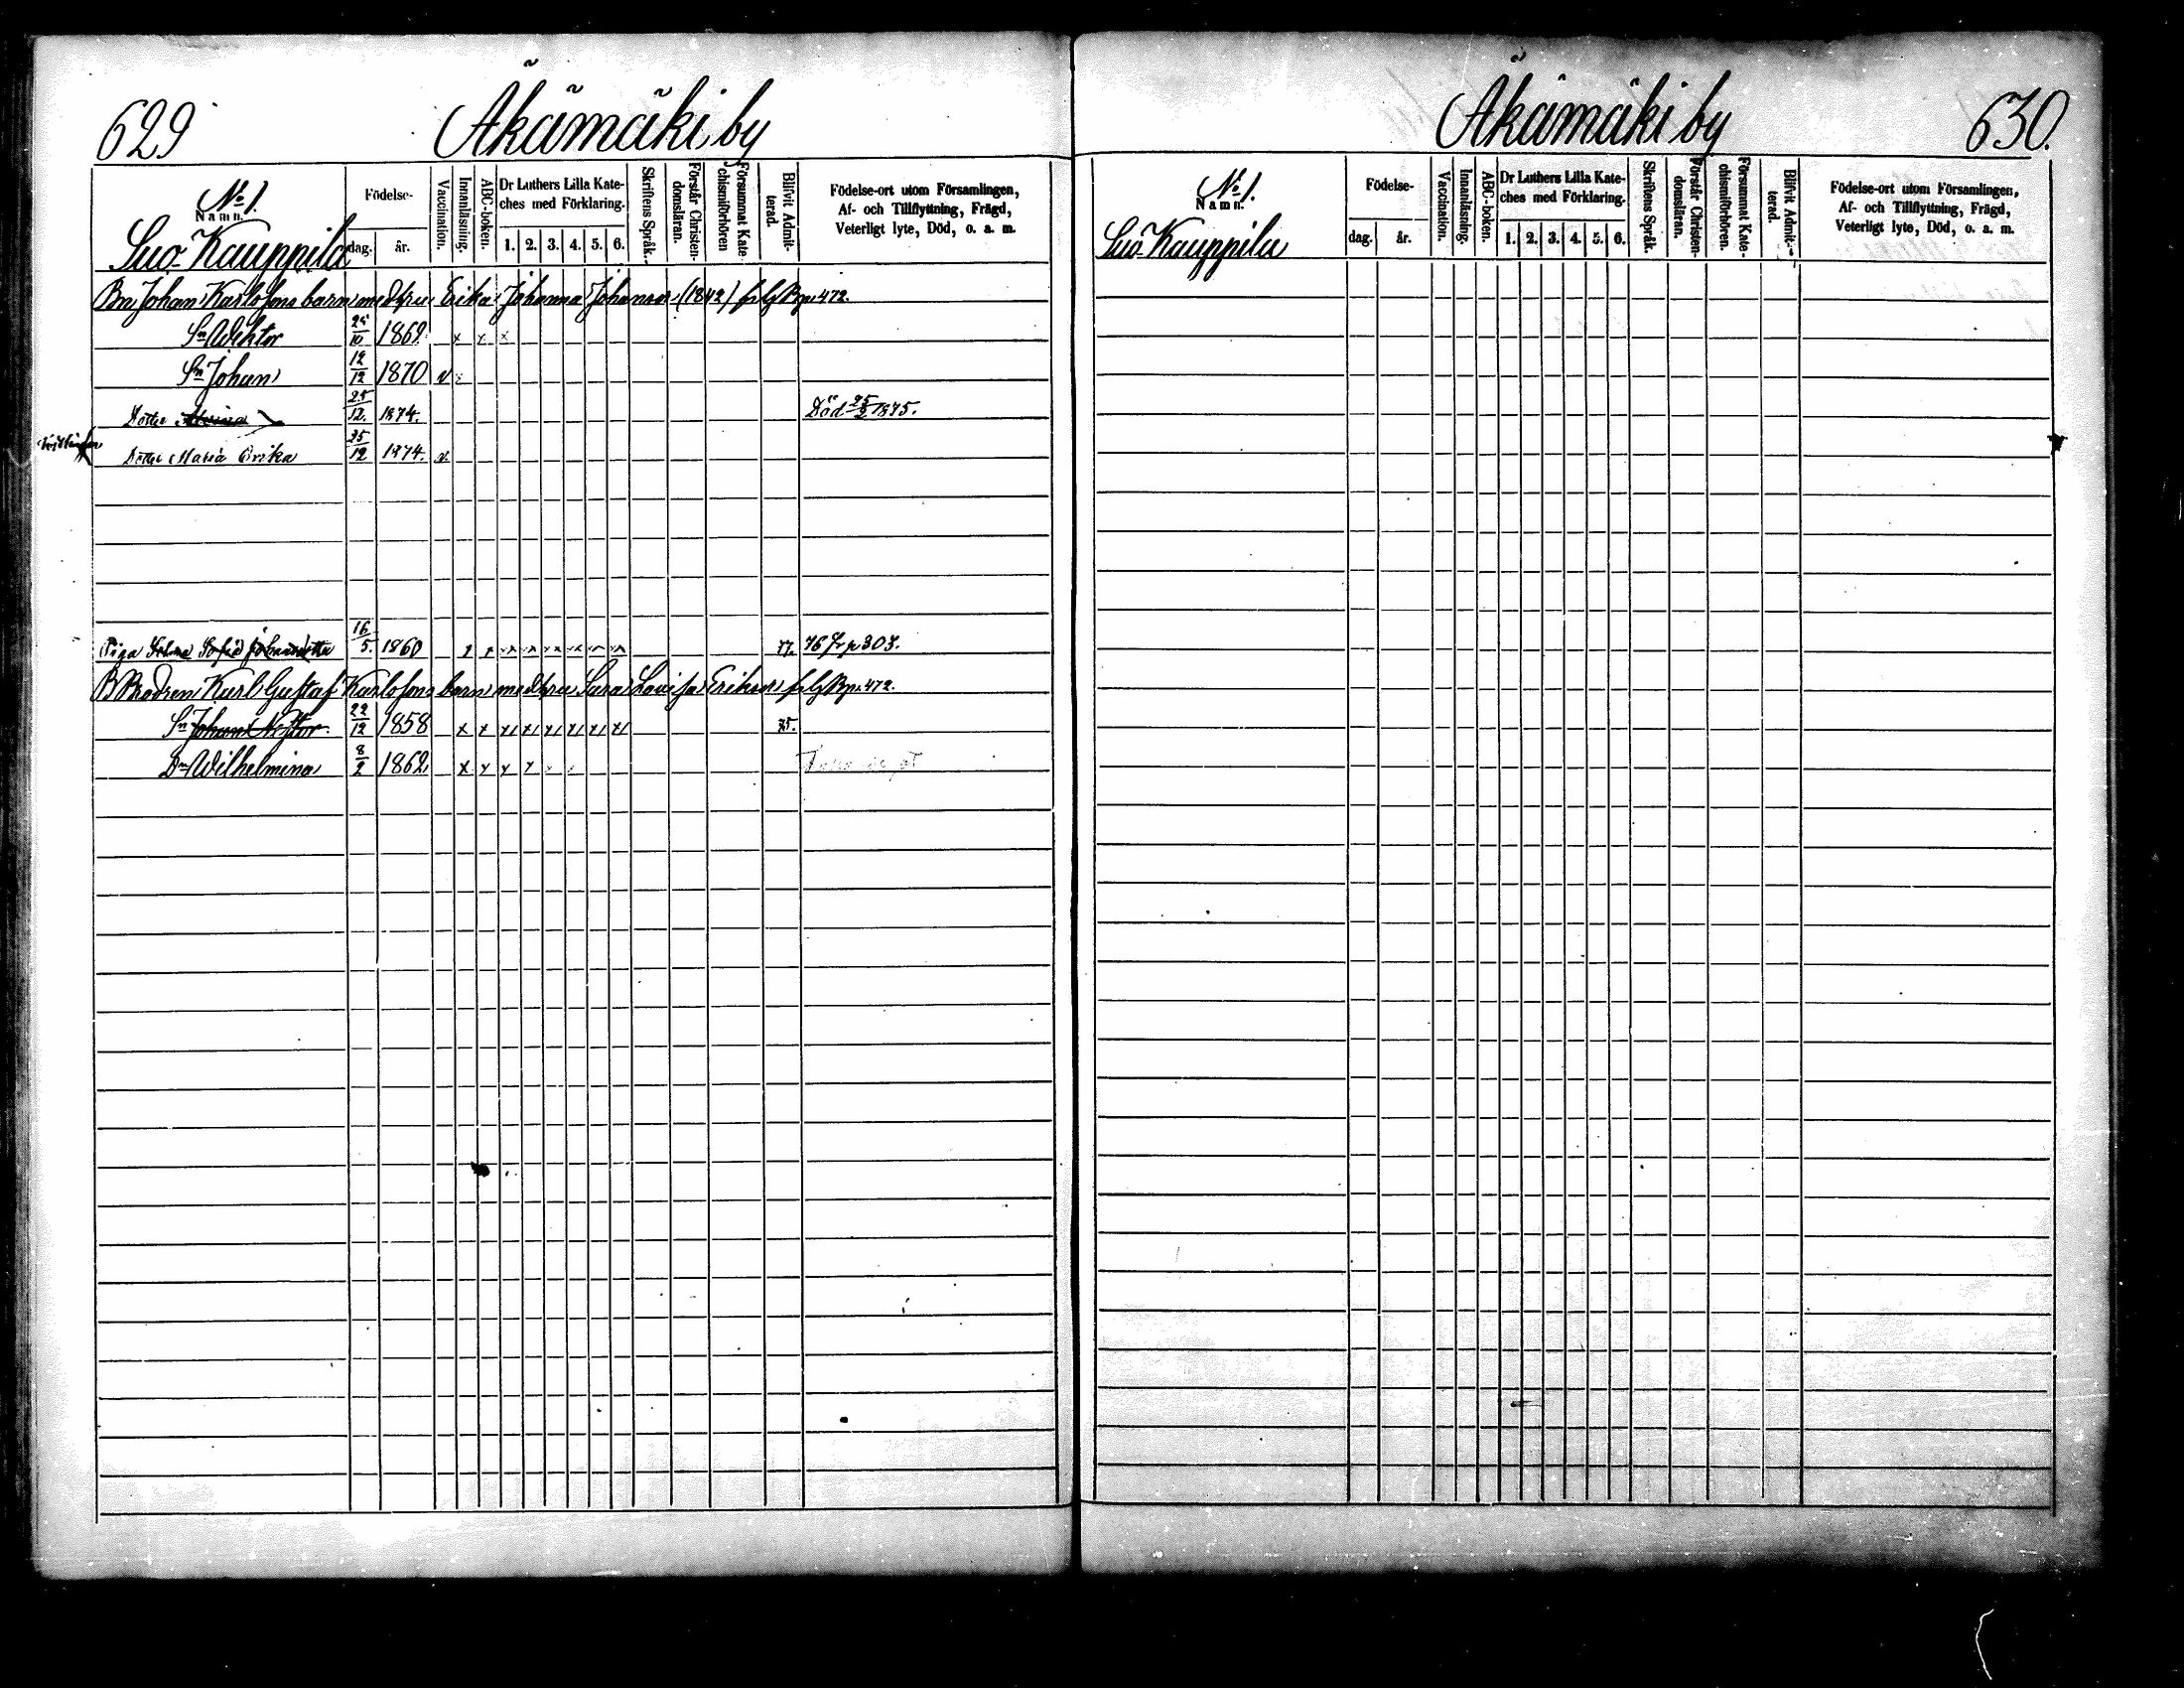 629 Äkämäki by
No 1.
Namn.
Suo-Kauppila
Födelse-
dag. år.
Vaccination.
Innanläsning.
ABC-boken.
Dr Luthers Lilla Kate-
ches med Förklaring.
1. 2. 3. 4. 5. 6.
Skriftens Språk.
Förstår Christen-
domsläran.
Försummat Kate-
chismiförhören
Blifvit Admit-
terad.
Födelse-ort utom Församlingen,
Af- och Tillflyttning, Frägd,
Veterligt lyte, Död, o. a. m.
Bn Johan Karlsons barn med hru Erika Johanna Johansdr (1842) fr LgBp. 472.
Sn Wiktor 10 1869. x x x
Sn Johan 12/12 1870 v
Dotter 25/12. 1874. Död 25/2 1875.
Dotter Maria Erika 25/12 1874. v.
Piga Selma Sofia Johansdtr 16/5. 1860 x x x x x x x x 77. 76 fr p 303.
B Brodren Karl Gustaf Karlsons barn med hru Sara Lovisa Eriksdr fr LgBp. 472.
Sn Johan Nestor 22/12 1858 x x x x x x x x 75.
Dr Wilhelmina 8/2 1862 x x x x x x
Äkämäki by 630.
No 1.
Namn.
Suo-Kauppila
Födelse-
dag. år.
Vaccination.
Innanläsning.
ABC-boken.
Dr Luthers Lilla Kate-
ches med Förklaring.
1. 2. 3. 4. 5. 6.
Skriftens Språk.
Förstår Christen-
domsläran.
Försummat Kate-
chismiförhören.
Blifvit Admit-
terad.
Födelse-ort utom Församlingen,
Af- och Tillflyttning, Frägd,
Veterligt lyte, Död, o. a. m.